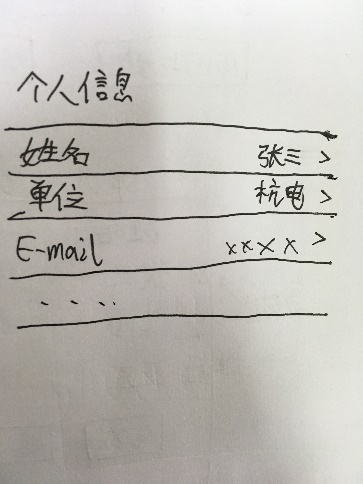 个人信息
姓名 张三 >
单位 杭电 >
E-mail xxxx >
....